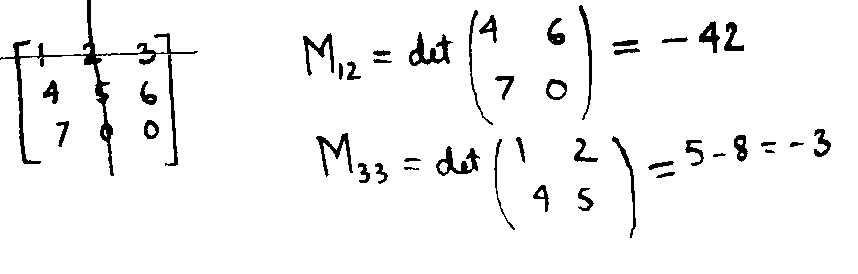 1 2 3
4 5 6
7 0 0
M₁₂ = det (4 6
7 0) = -42
M₃₃ = det (1 2
4 5) = 5-8 = -3